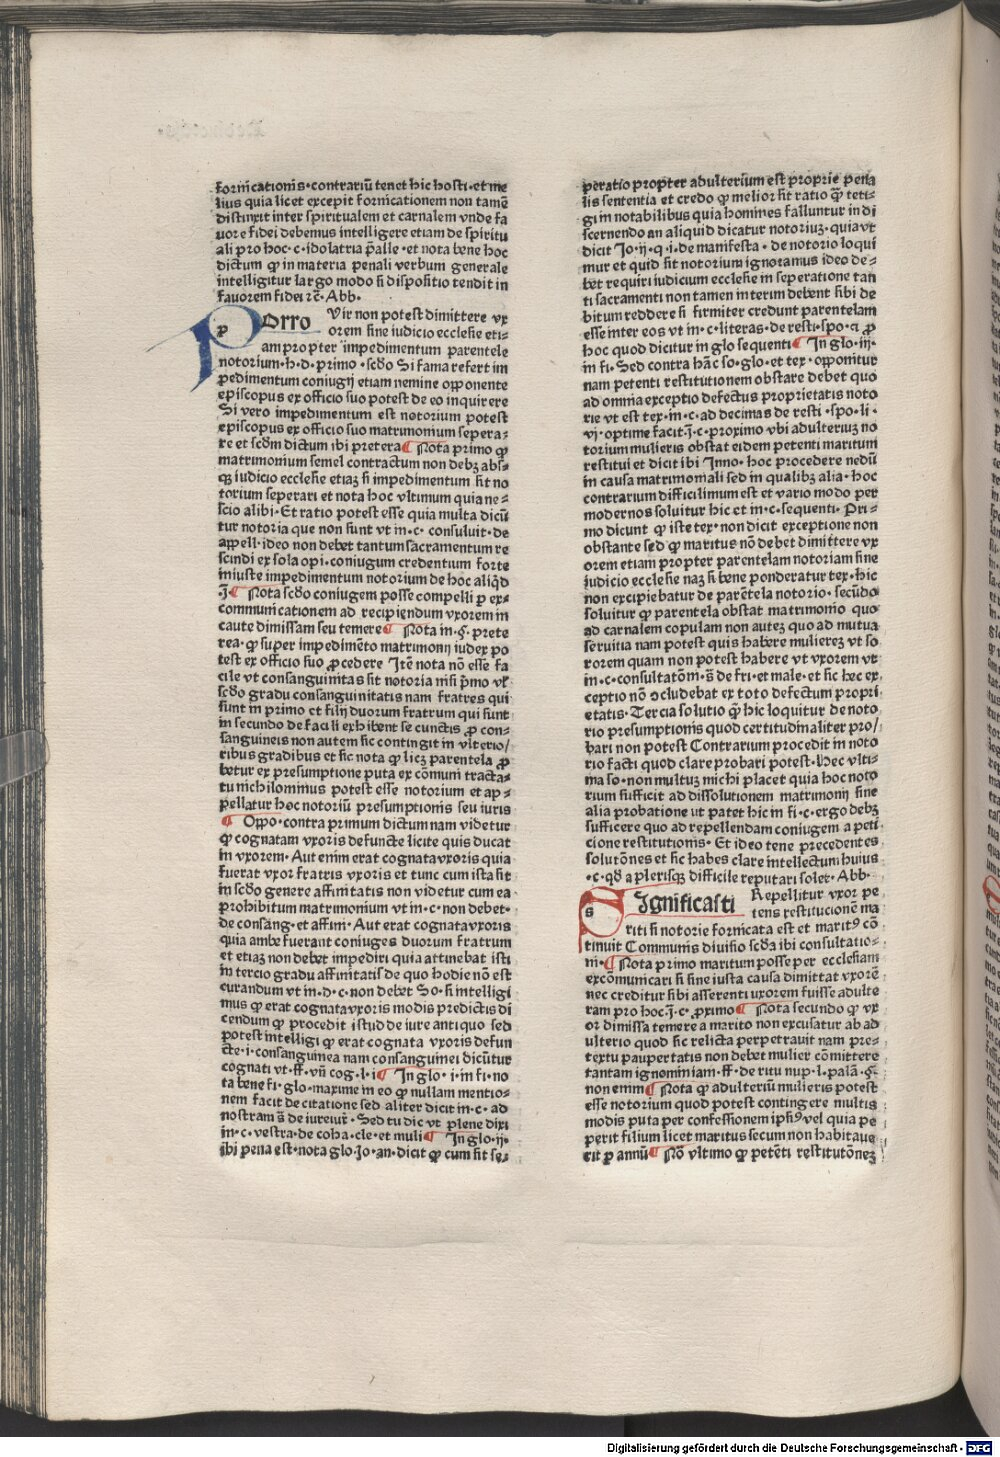 fornicationis·contrariũ tenet hic hosti·et me
lius quia licet excepit fornicationem non tamẽ
distinxit inter spiritualem et carnalem vnde fa
uore fidei debemus intelligere etiam de spiritu
ali pro hoc·c·idolatria p̃alle·et nota bene hoc
dictum ꝙ in materia penali verbum generale
intelligitur largo modo si dispositio tendit in
fauorem fidei rẽ·Abb·
Porro Vir non potest dimittere vx
orem sine iudicio ecclesie eti⸗
am propter impedimentum parentele
notorium·h·d·primo·scďo Si fama refert im
pedimentum coniugij etiam nemine opponente
episcopus ex officio suo potest de eo inquirere
Si vero impedimentum est notorium potest
episcopus ex officio suo matrimonium sepera⸗
re et scďm dictum ibi pretera ¶ Nota primo ꝙ
matrimonium semel contractum non debꝫ abs⸗
qꝫ iudicio ecclesie etiaꝫ si impedimentum sit no
torium seperari et nota hoc vltimum quia ne⸗
scio alibi·Et ratio potest esse quia multa dicũ
tur notoria que non sunt vt in·c·consuluit·de
appell·ideo non debet tantum sacramentum re
scindi ex sola opi·coniugum credentium forte
iniuste impedimentum notorium de hoc aliqďd
·j̃· ¶ Nota scďo coniugem posse compelli p ex⸗
communicationem ad recipiendum vxorem in
caute dimissam seu temere ¶ Nota in·§·prete
rea·ꝙ super impedimẽto matrimonij iudex po
test ex officio suo ꝓcedere Itẽ nota nõ esse fa
cile vt consanguinitas sit notoria nisi p̃mo vľ
scďo gradu consanguinitatis nam fratres qui
sunt in primo et filij duorum fratrum qui sunt
in secundo de facili exhibent se cunctis ꝓ con⸗
sanguineis non autem sic contingit in vlterio/
ribus gradibus et sic nota ꝙ licꝫ parentela ꝓ
betur ex presumptione puta ex cõmuni tracta⸗
tu nichilominus potest esse notorium et ap⸗
pellatur hoc notoriũ presumptionis seu iuris
¶ Oppo·contra primum dictum nam videtur
ꝙ cognatam vxoris defuncte licite quis ducat
in vxorem·Aut enim erat cognata vxoris quia
fuerat vxor fratris vxoris et tunc cum ista sit
in scďo genere affinitatis non videtur cum ea
prohibitum matrimonium vt in·c·non debet·
de consang·et affini·Aut erat cognata vxoris
quia ambe fuerant coniuges duorum fratrum
et etiaꝫ non debet impediri quia attinebat isti
in tercio gradu affinitatis de quo hodie nõ est
curandum vt in·d·c·non debet So·si intelligi
mus ꝙ erat cognata vxoris modis predictis di
cendum ꝙ procedit istud de iure antiquo sed
potest intelligi ꝙ erat cognata vxoris defun
cte·i·consanguinea nam consanguinei dicũtur
cognati vt·ff·vñ cog·l·i ¶ In glo·i·in fi·no
ta bene fi·glo·maxime in eo ꝙ nullam mentio⸗
nem facit de citatione sed aliter dicit in·c·ad
nostram s̃ de iureiur̃·Sed tu dic vt plene dixi
in·c·vestra·de coha·cle·et muli ¶ In glo·ij·
ibi pena est·nota glo·Jo·an·dicit ꝙ cum sit se⸗
peratio propter adulterium est proprie pena
lis sententia et credo ꝙ melior sit ratio q̃ teti⸗
gi in notabilibus quia homines falluntur in di
scernendo an aliquid dicatur notoriuꝫ·quia vt
dicit Jo·ij·q·i·de manifesta·de notorio loqui
mur et quid sit notorium ignoramus ideo de⸗
bet requiri iudicium ecclesie in seperatione tan
ti sacramenti non tamen interim debent sibi de
bitum reddere si firmiter credunt parentelam
esse inter eos vt in·c·literas·de resti·spo·q ꝓ
hoc quod dicitur in glo sequenti ¶ In glo·iij·
in fi·Sed contra hãc so·glo·et tex·opponitur
nam petenti restitutionem obstare debet quo
ad omnia exceptio defectus proprietatis noto
rie vt est tex·in·c·ad decimas de resti·spo·li·
vj·optime facit·j̃·c·proximo vbi adulteriuꝫ no
torium mulieris obstat eidem petenti maritum
restitui et dicit ibi Inno·hoc procedere nedũ
in causa matrimoniali sed in qualibꝫ alia·hoc
contrarium difficilimum est et vario modo per
modernos soluitur hic et in·c·sequenti·Pri⸗
mo dicunt ꝙ iste tex·non dicit exceptione non
obstante sed ꝙ maritus nõ debet dimittere vx
orem etiam propter parentelam notoriam sine
iudicio ecclesie naꝫ si bene ponderatur tex·hic
non excipiebatur de parẽtela notorio·secũdo
soluitur ꝙ parentela obstat matrimonio quo
ad carnalem copulam non autez quo ad mutua
seruitia nam potest quis habere mulierez vt so
rorem quam non potest habere vt vxorem vt
in·c·consultatõm·s̃ de fri·et male·et sic hec ex
ceptio nõ ɔcludebat ex toto defectum propri
etatis·Tercia solutio q̃ hic loquitur de noto
rio presumptionis quod certitudinaliter pro/
bari non potest Contrarium procedit in noto
rio facti quod clare probari potest·Hec vlti⸗
ma so·non multuꝫ michi placet quia hoc noto
rium sufficit ad dissolutionem matrimonij sine
alia probatione ut patet hic in fi·c·ergo debꝫ
sufficere quo ad repellendam coniugem a peti
cione restitutionis·Et ideo tene precedentes
solutões et sic habes clare intellectum huius
·c·qďd a plerisqꝫ difficile reputari solet·Abb·
Significasti Repellitur vxor pe
tens restitucionẽ ma
riti si notorie fornicata est et maritꝰ cõ
tinuit Communis diuisio scďa ibi consultatio⸗
ni· ¶ Nota primo maritum posse per ecclesiam
excõmunicari si sine iusta causa dimittat vxorẽ
nec creditur sibi asserenti uxorem fuisse adulte
ram pro hoc·j̃·c·proximo ¶ Nota secundo ꝙ vx
or dimissa temere a marito non excusatur ab ad
ulterio quod sic relicta perpetrauit nam pre⸗
textu paupertatis non debet mulier cõmittere
tantam ignominiam·ff·de ritu nup·l·palã·§·
non emm ¶ Nota ꝙ adulteriũ mulieris potest
esse notorium quod potest contingere multis
modis puta per confessionem ipsiꝰ vel quia pe
perit filium licet maritus secum non habitaue
rit p annũ ¶ Nõ vltimo ꝙ petẽti restitutõneꝫ
Digitalisierung gefördert durch die Deutsche Forschungsgemeinschaft - DFG